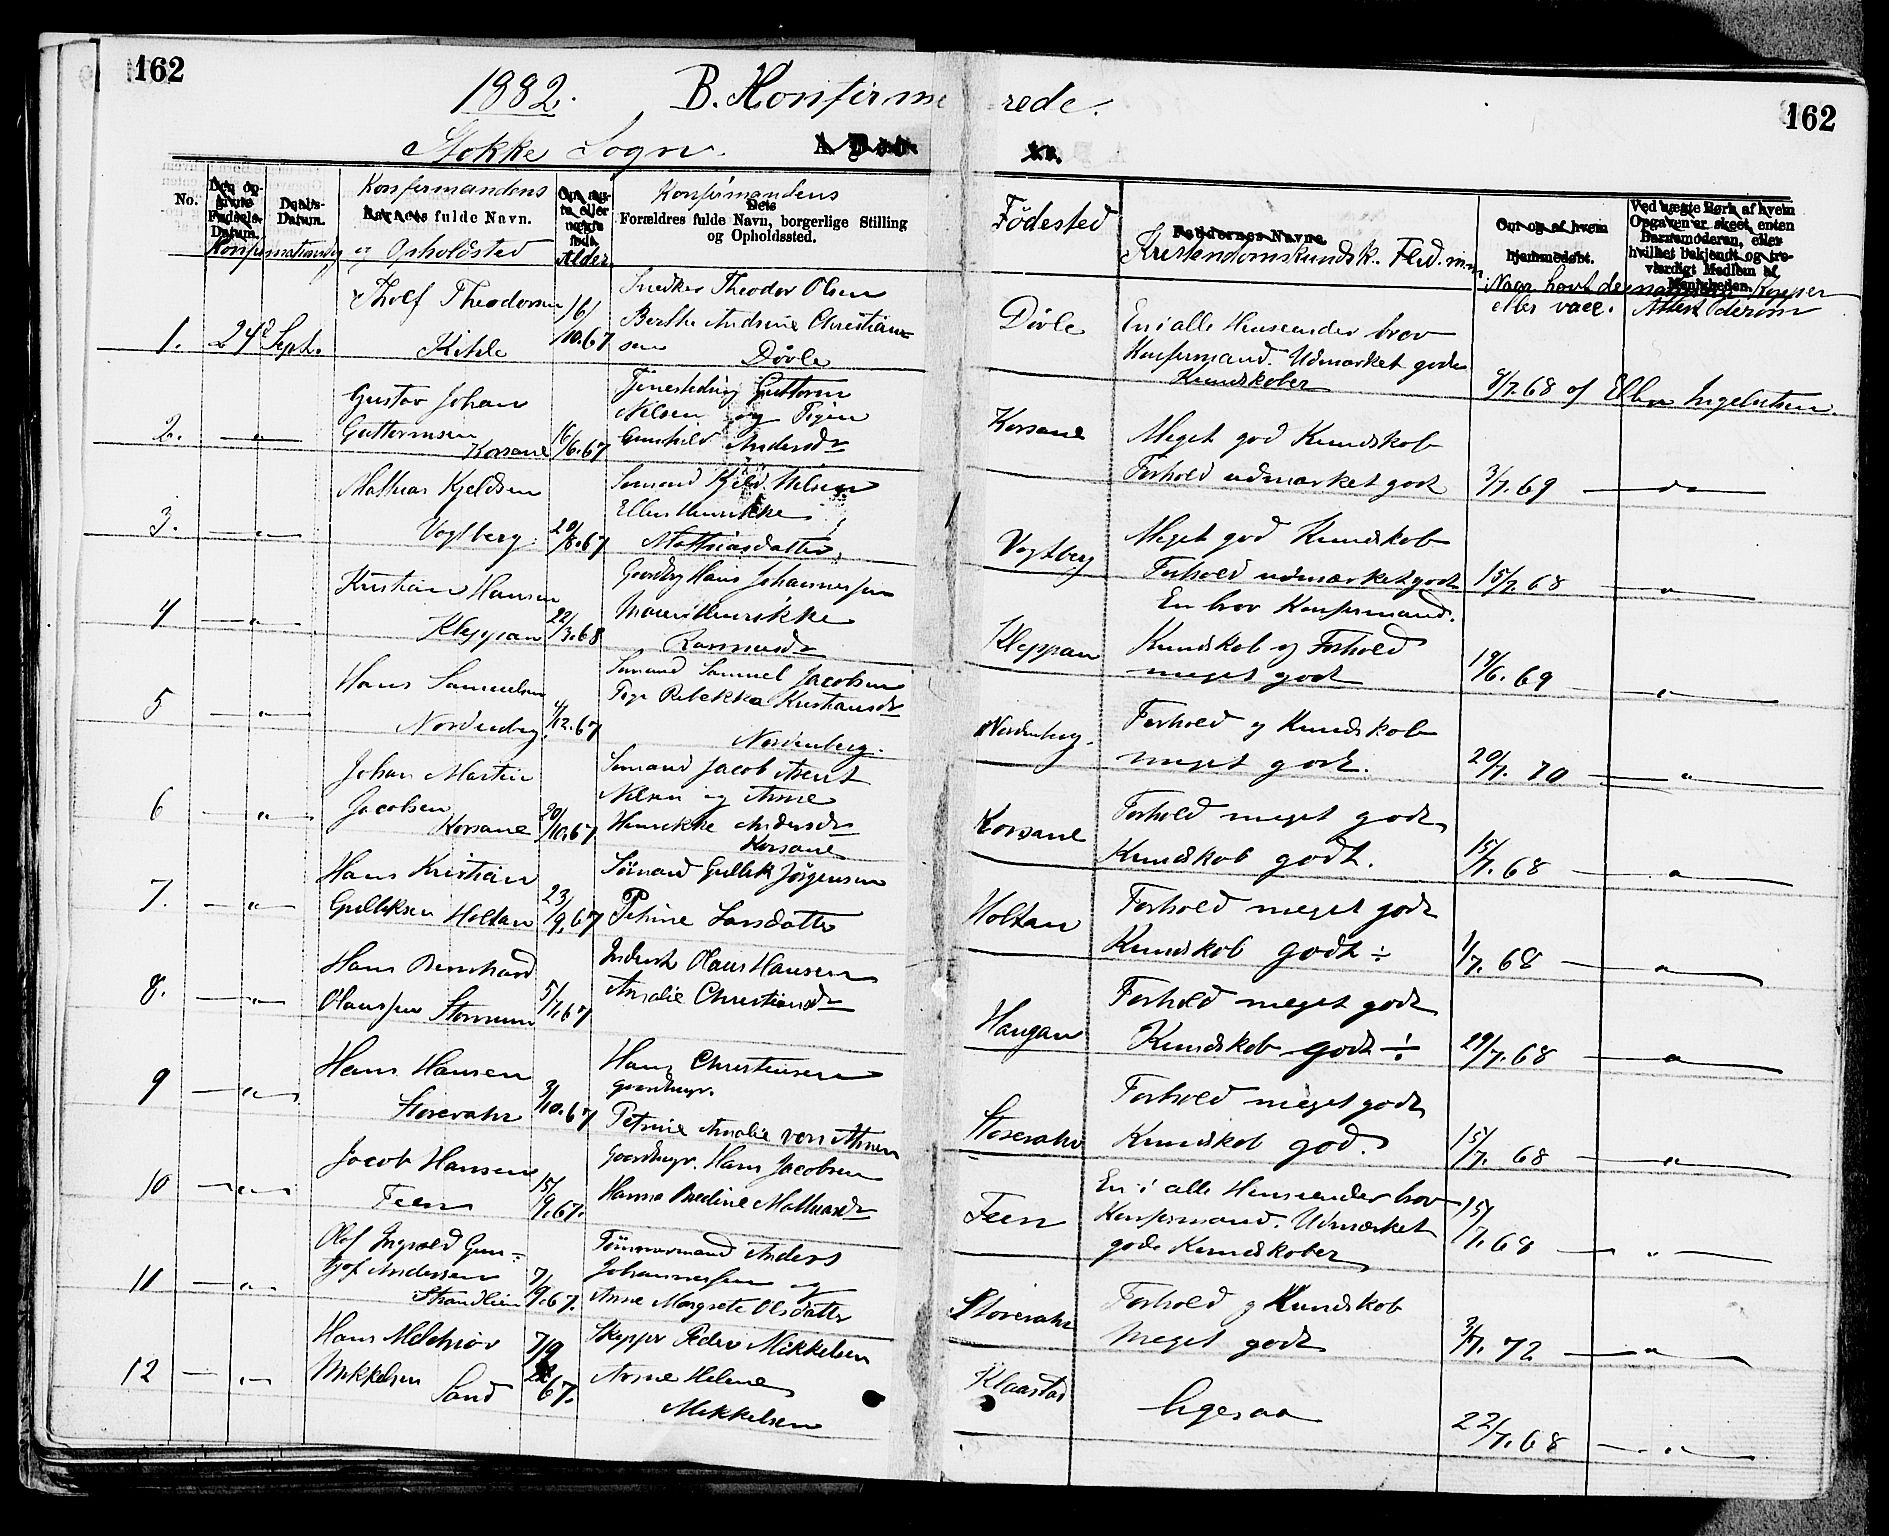 162
162
1882. B. Konfirmerede.
Stokke Sogn.
No.
Konfirmandens
fulde Navn.
og Opholdsted
Konfirmationsdag
Alder.
Konfirmandens
Forældres fulde Navn, borgerlige Stilling
og Opholdssted.
Fødested
Kristendomskundsk. Flid. m.m.
Naar havt de naturl. Kopper
eller vacc.
Attest
1. 24d Septr.
Tholf Theodorsen
Kihle
16/10.67
Snedker Theodor Olsen
Berthe Andrine Christiansen
Døvle
Døvle
En i alle Henseender brav
Konfirmand. Udmærket gode
Kundskaber
8/7.68 af Ingebretsen.
2. — " —
Gustav Johan
Guttormsen
Korsane
16/6.67
Guttorm
Nilsen og Pigen
Gunhild Andersdr
Korsane
Meget god Kundskab
Forhold udmærket godt
3/7.69 — do —
3. — " —
Mathias Kjeldsen
Vogtberg.
20/8.67
Sømand Kjeld Nilsen
Ellen Henrikke
Mathiasdatter,
Vogtberg
Meget god Kundskab
Forhold udmærket godt
15/7.68 — " —
4 — " —
Kristian Hansen
Kleppan
22/3.68
Gaardbr Hans Johannessen
Maren Henrikke
Rasmusdr
Kleppan
En brav Konfirmand.
Kundskab og Forhold
meget godt
19/6.69 — " —
5 — " —
Hans Samuelsen
Nordenberg.
4/12.67
Sømand Samuel Jacobsen
Pige Rebekka Kristiansdr
Nordenberg.
Nordenberg.
Forhold og Kundskab
meget godt.
20/7.70 — " —
6 — " —
Johan Martin
Jacobsen
Korsane
20/10.67
Sømand Jacob Arent
Nilsen og Anne
Henrikke Andersdr
Korsane
Korsane
Forhold meget godt,
Kundskab godt.
15/7.68 — " —
7. — " —
Hans Kristian
Gulliksen Holtan
23/9.67
Sömand Gullik Jörgensen
Petrine Larsdatter
Holtan
Forhold meget godt
Kundskab godt ÷
1/7.68 — " —
8. — " —
Hans Bernhard
Olaussen Stormoen
5/7.67
Inderst Olaus Hansen
Amalie Christiansdr
Haugan
Forhold meget godt
Kundskab godt ÷
29/7.68 — " —
9 — " —
Hans Hansen
Storevahr
3/10.67
Hans Christensen
Gaardbruger.
Petrine Amalie von Ahnen
Storevahr
Forhold meget godt,
Kundskab god.
15/7.68 — " —
10 — " —
Jacob Hansen
Feen
15/9.67.
Gaardbrugr. Hans Jacobsen
Hanna Bredine Mathiasdr
Feen
En i alle Henseender brav
Konfirmand. Udmærket
gode Kundskaber
15/7.68 — " —
11 — " —
Olaf Ingvald Gun-
Andersen
Strandlien
7/9.67.
Tömmermand Anders
Johannessen og
Anne Margrete Olsdatter
Storevahr
Forhold og Kundskab
Meget godt
3/7.72 — " —
12 — " —
Hans Melchior
Mikkelsen
Sand
7/9
67.
Skipper Peder Mikkelsen
Anne Helene
Mikkelsen
Klaastad
ligesaa
22/7.68 — " —